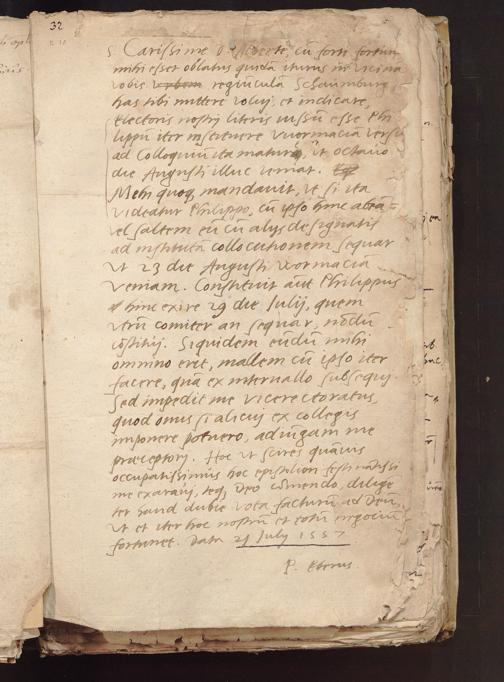 32
S Carissime D. cū forte fortuna
mihi esset oblatus quidā iturus in vicinā
vobis regiunculā Schaumburg,
has tibi mittere volui, et indicare,
Electoris nostri literis iussū esse Phi
lippū iter instituere Wormaciam versus
ad Colloquiū ita mature, ut octauo
die Augusti illuc veniat.
Mihi quoq mandauit, ut si ita
videatur Philippo, cū ipso hinc abeā
vel saltem eū cū alijs designatis
ad institutā collocutionem sequar
ut 23 die Augusti Wormaciā
veniam. Constituit aūt Philippus
hinc exire 29 die Iulij, quem
utrū comiter an sequar, nōdū
cōstitui. Siquidem eūdū mihi
omnino erit, mallem cū ipso iter
facere, quā ex interuallo subsequi
Sed impedit me vicerectoratus,
quod onus si alicui ex collegis
imponere potuero, adiūgam me
præceptori. Hoc ut scires quāuis
occupatissimus hoc epistolion festinatissi
me exaraui, teq Deo cōmendo, dilige
ter haud dubie vota facturū ad Deū,
ut et iter hoc nostrū et totū negociū
fortunet. Data 21 July 1557
P. Eberus.